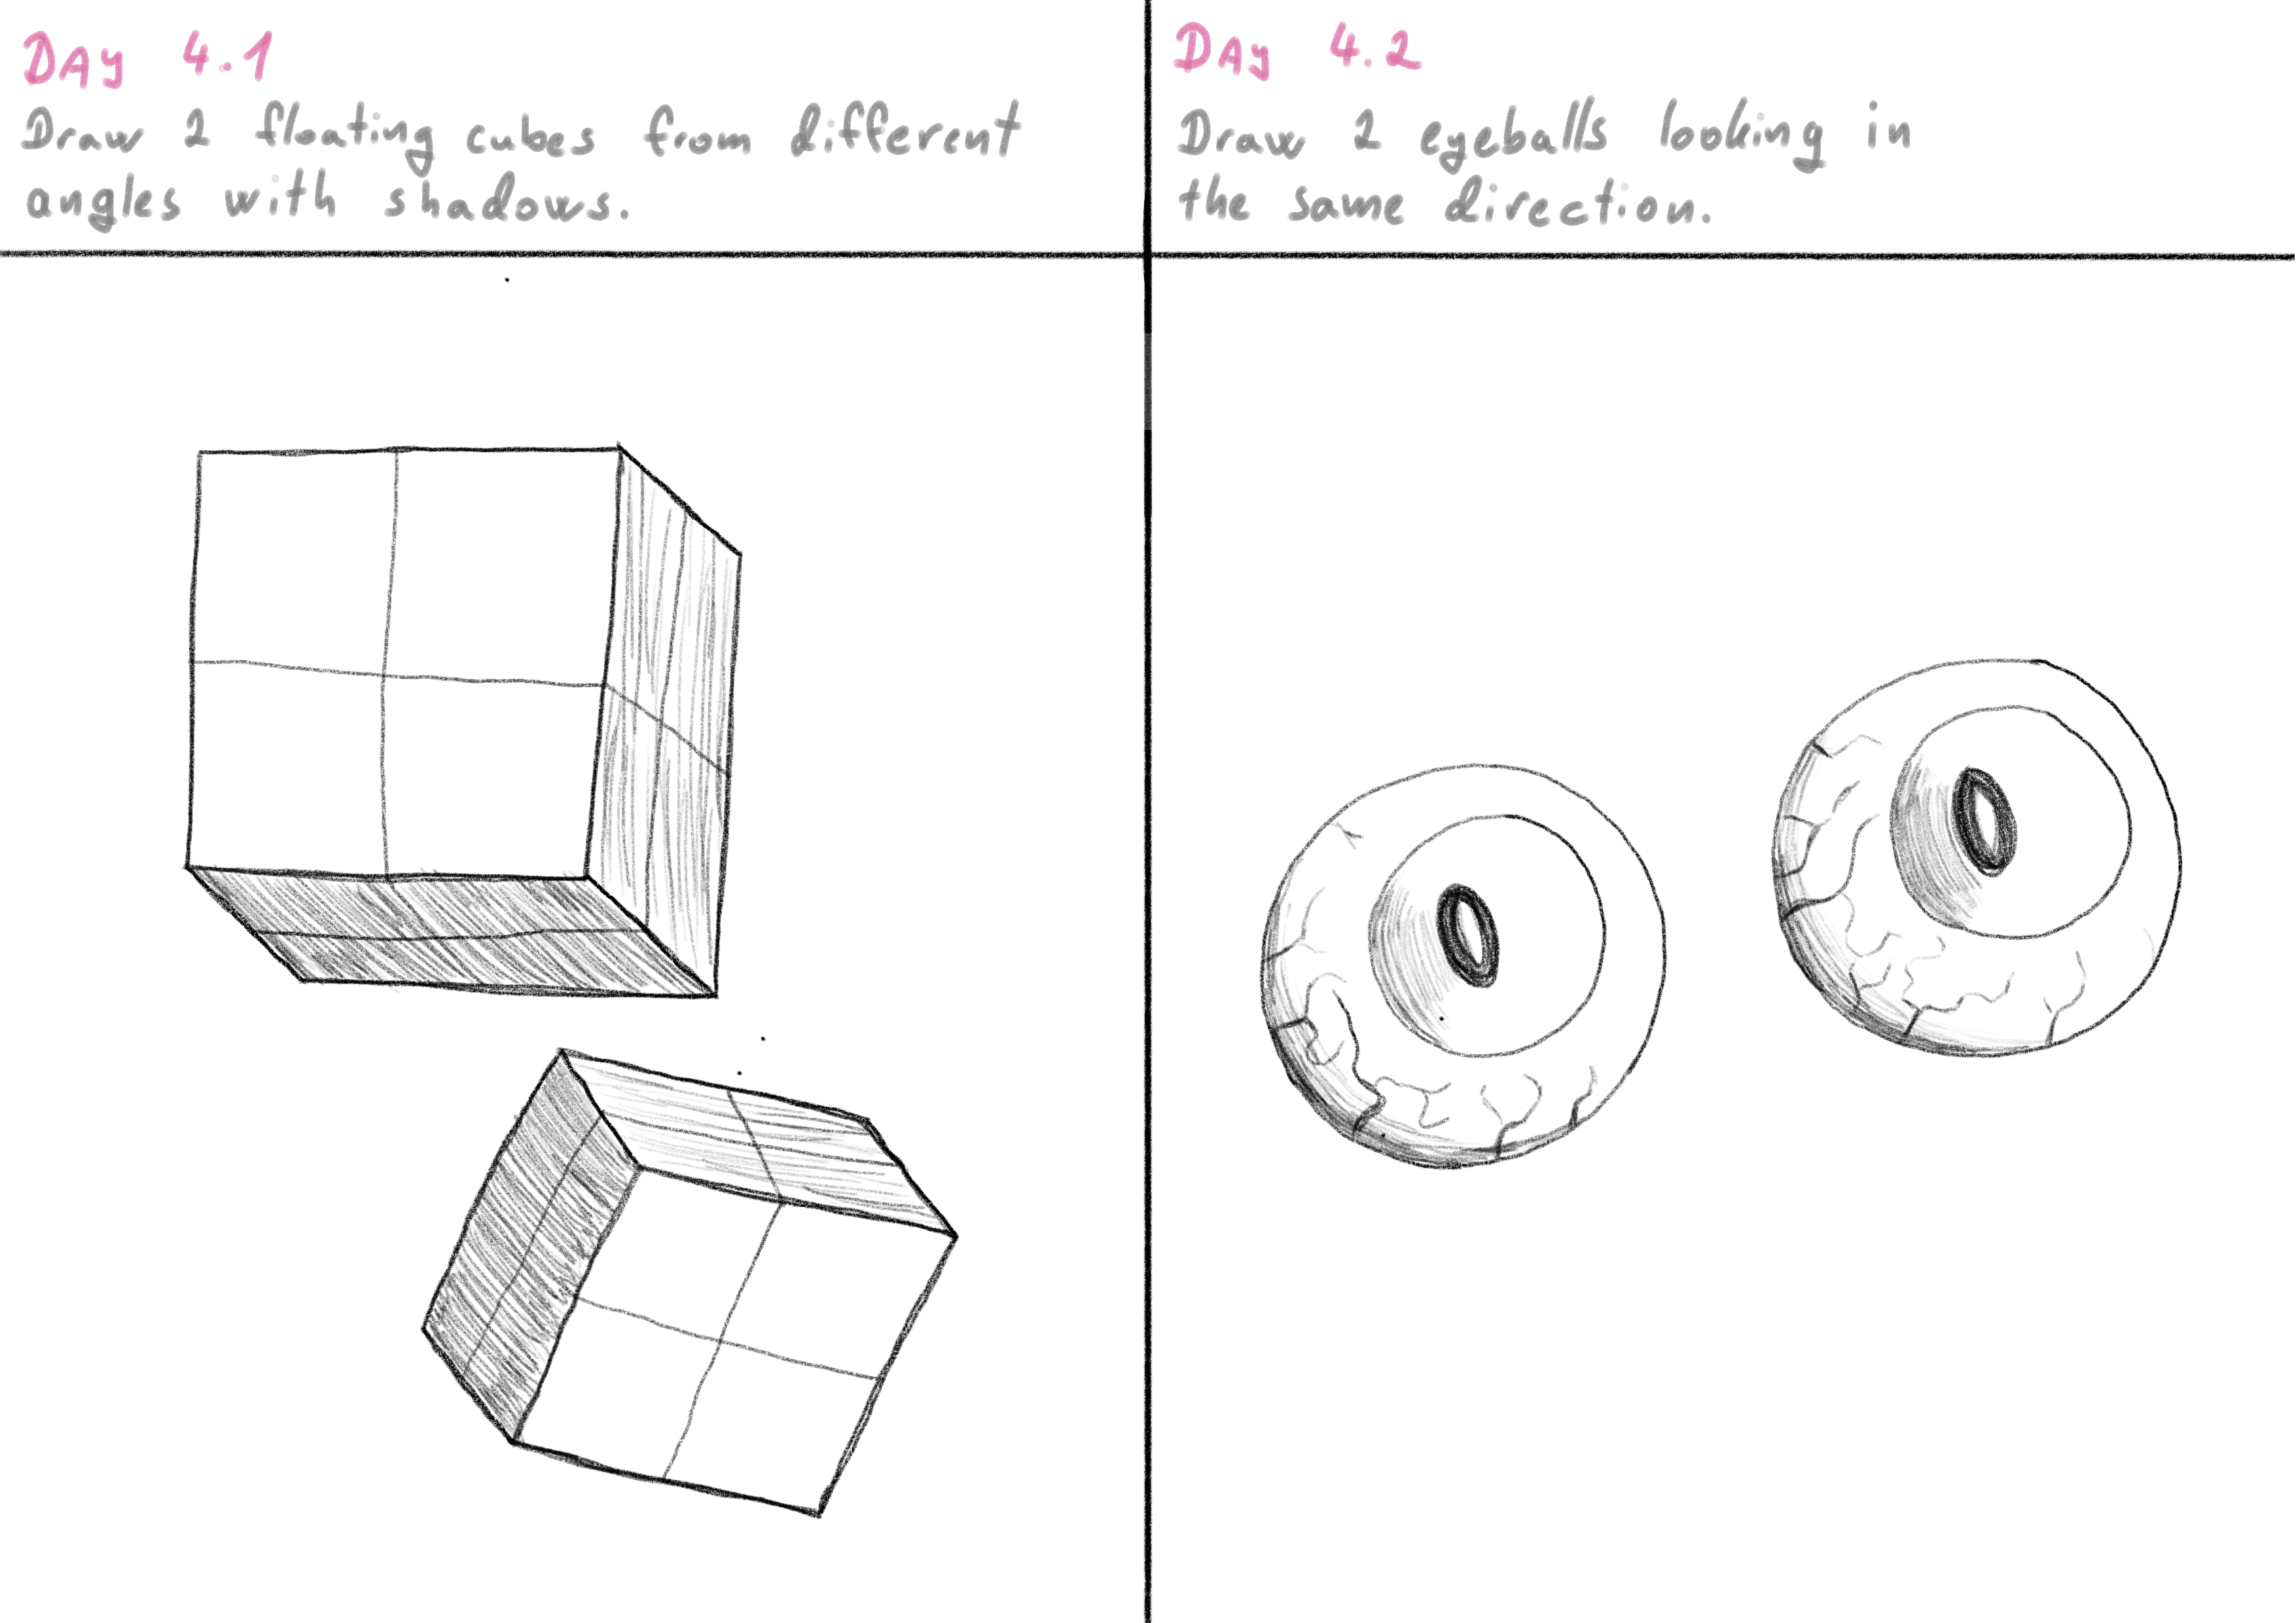 DAY 4.1
Draw 2 floating cubes from different
angles with shadows.
DAY 4.2
Draw 2 eyeballs looking in
the same direction.